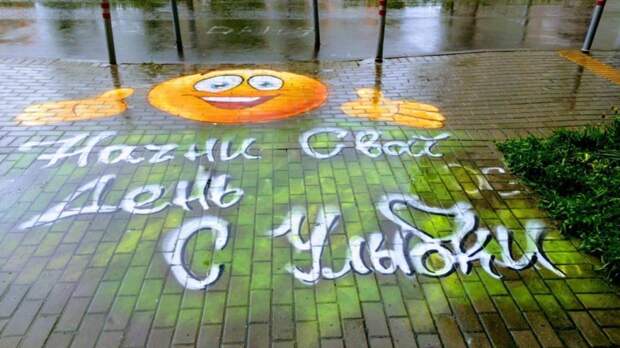 Начни Свой
День
С Улыбки